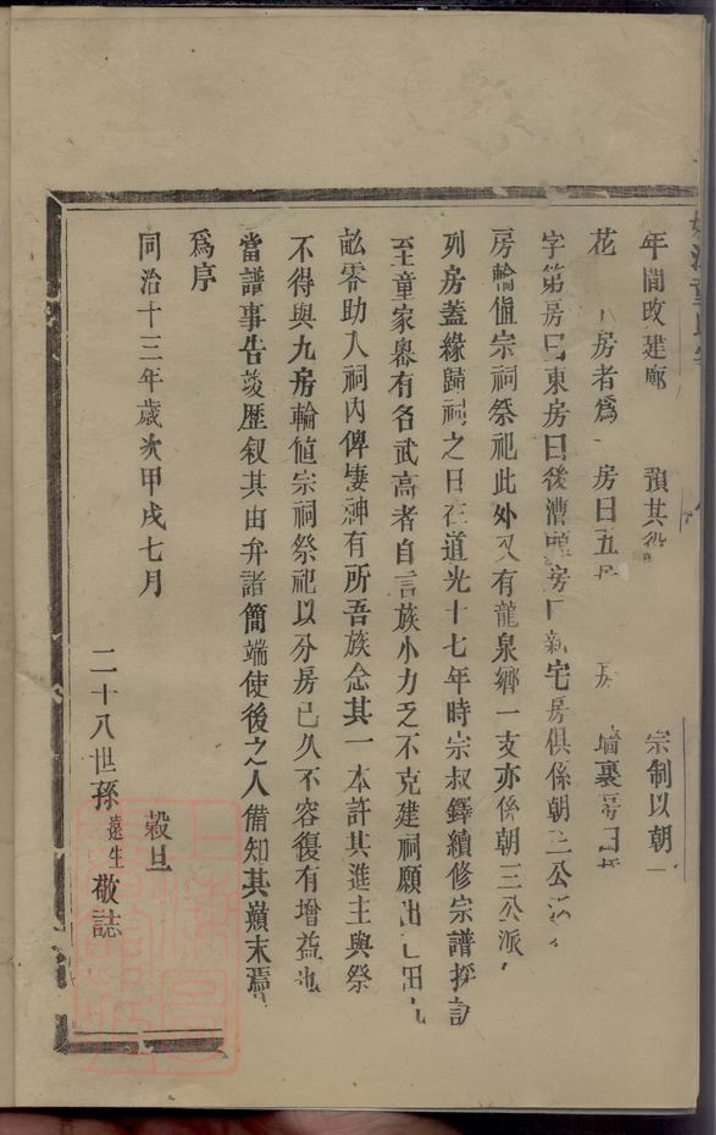 年間改建廊 預其 宗制以朝
花 房者爲 房曰五 房 墻裏房曰
字第房曰東房曰後漕頭房曰新宅房俱係朝三公
房輪値宗祠祭祀此外又有龍泉鄉一支亦係朝三公派
列房蓋緣歸祠之日在道光十七年時宗叔鐸續修宗譜採訪
至童家嶴有各武高者自言族小力乏不克建祠願出 田九
畝零助入祠內俾棲神有所吾族念其一本許其進主與祭
不得與九房輪値宗祠祭祀以分房已久不容復有增益也
當譜事告竣歷叙其由弁諸簡端使後之人備知其巔末焉
爲序
同治十三年歲次甲戌七月 穀旦
二十八世孫遠生敬誌